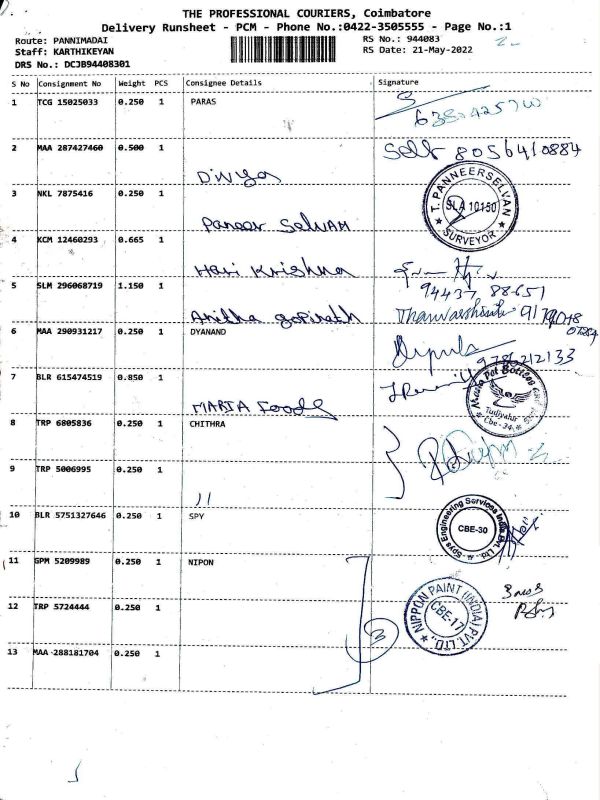 THE PROFESSIONAL COURIERS, Coimbatore
Delivery Runsheet - PCM - Phone No.:0422-3505555 - Page No.:1
Route: PANNIMADAI
RS No.: 944083
Staff: KARTHIKEYAN
RS Date: 21-May-2022
DRS No.: DCJB94408301
S No Consignment No Weight PCS Consignee Details Signature
1 TCG 15025033 0.250 1 PARAS
2 MAA 287427460 0.500 1 Divya Self 8056410884
3 NKL 7875416 0.250 1 Paneer Selvam T. PANNEERSELVAN SLA 10150 SURVEYOR
4 KCM 12460293 0.665 1 Hari Krishna
94437 88651
5 SLM 296068719 1.150 1 Anitha gopinath
6 MAA 290931217 0.250 1 DYANAND
7 BLR 615474519 0.850 1 MARIA Foods
8 TRP 6805836 0.250 1 CHITHRA
9 TRP 5006995 0.250 1 11
10 BLR 5751327646 0.250 1 SPY Engineering Services India Pvt. Ltd. CBE-30
11 GPM 5209989 0.250 1 NIPON
12 TRP 5724444 0.250 1 NIPPON PAINT (INDIA) PVT. LTD. CBE-17
3
13 MAA 288181704 0.250 1